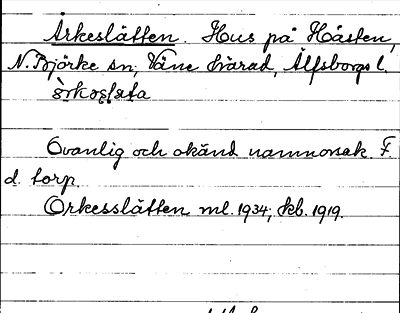 Årkeslätten. Hus på Håsten,
N. Björke sn, Väne härad, Älfsborgs l.
Ovanlig och okänd namnorsak. F.
d. torp.
Orkesslätten ml. 1934; hb. 1919.